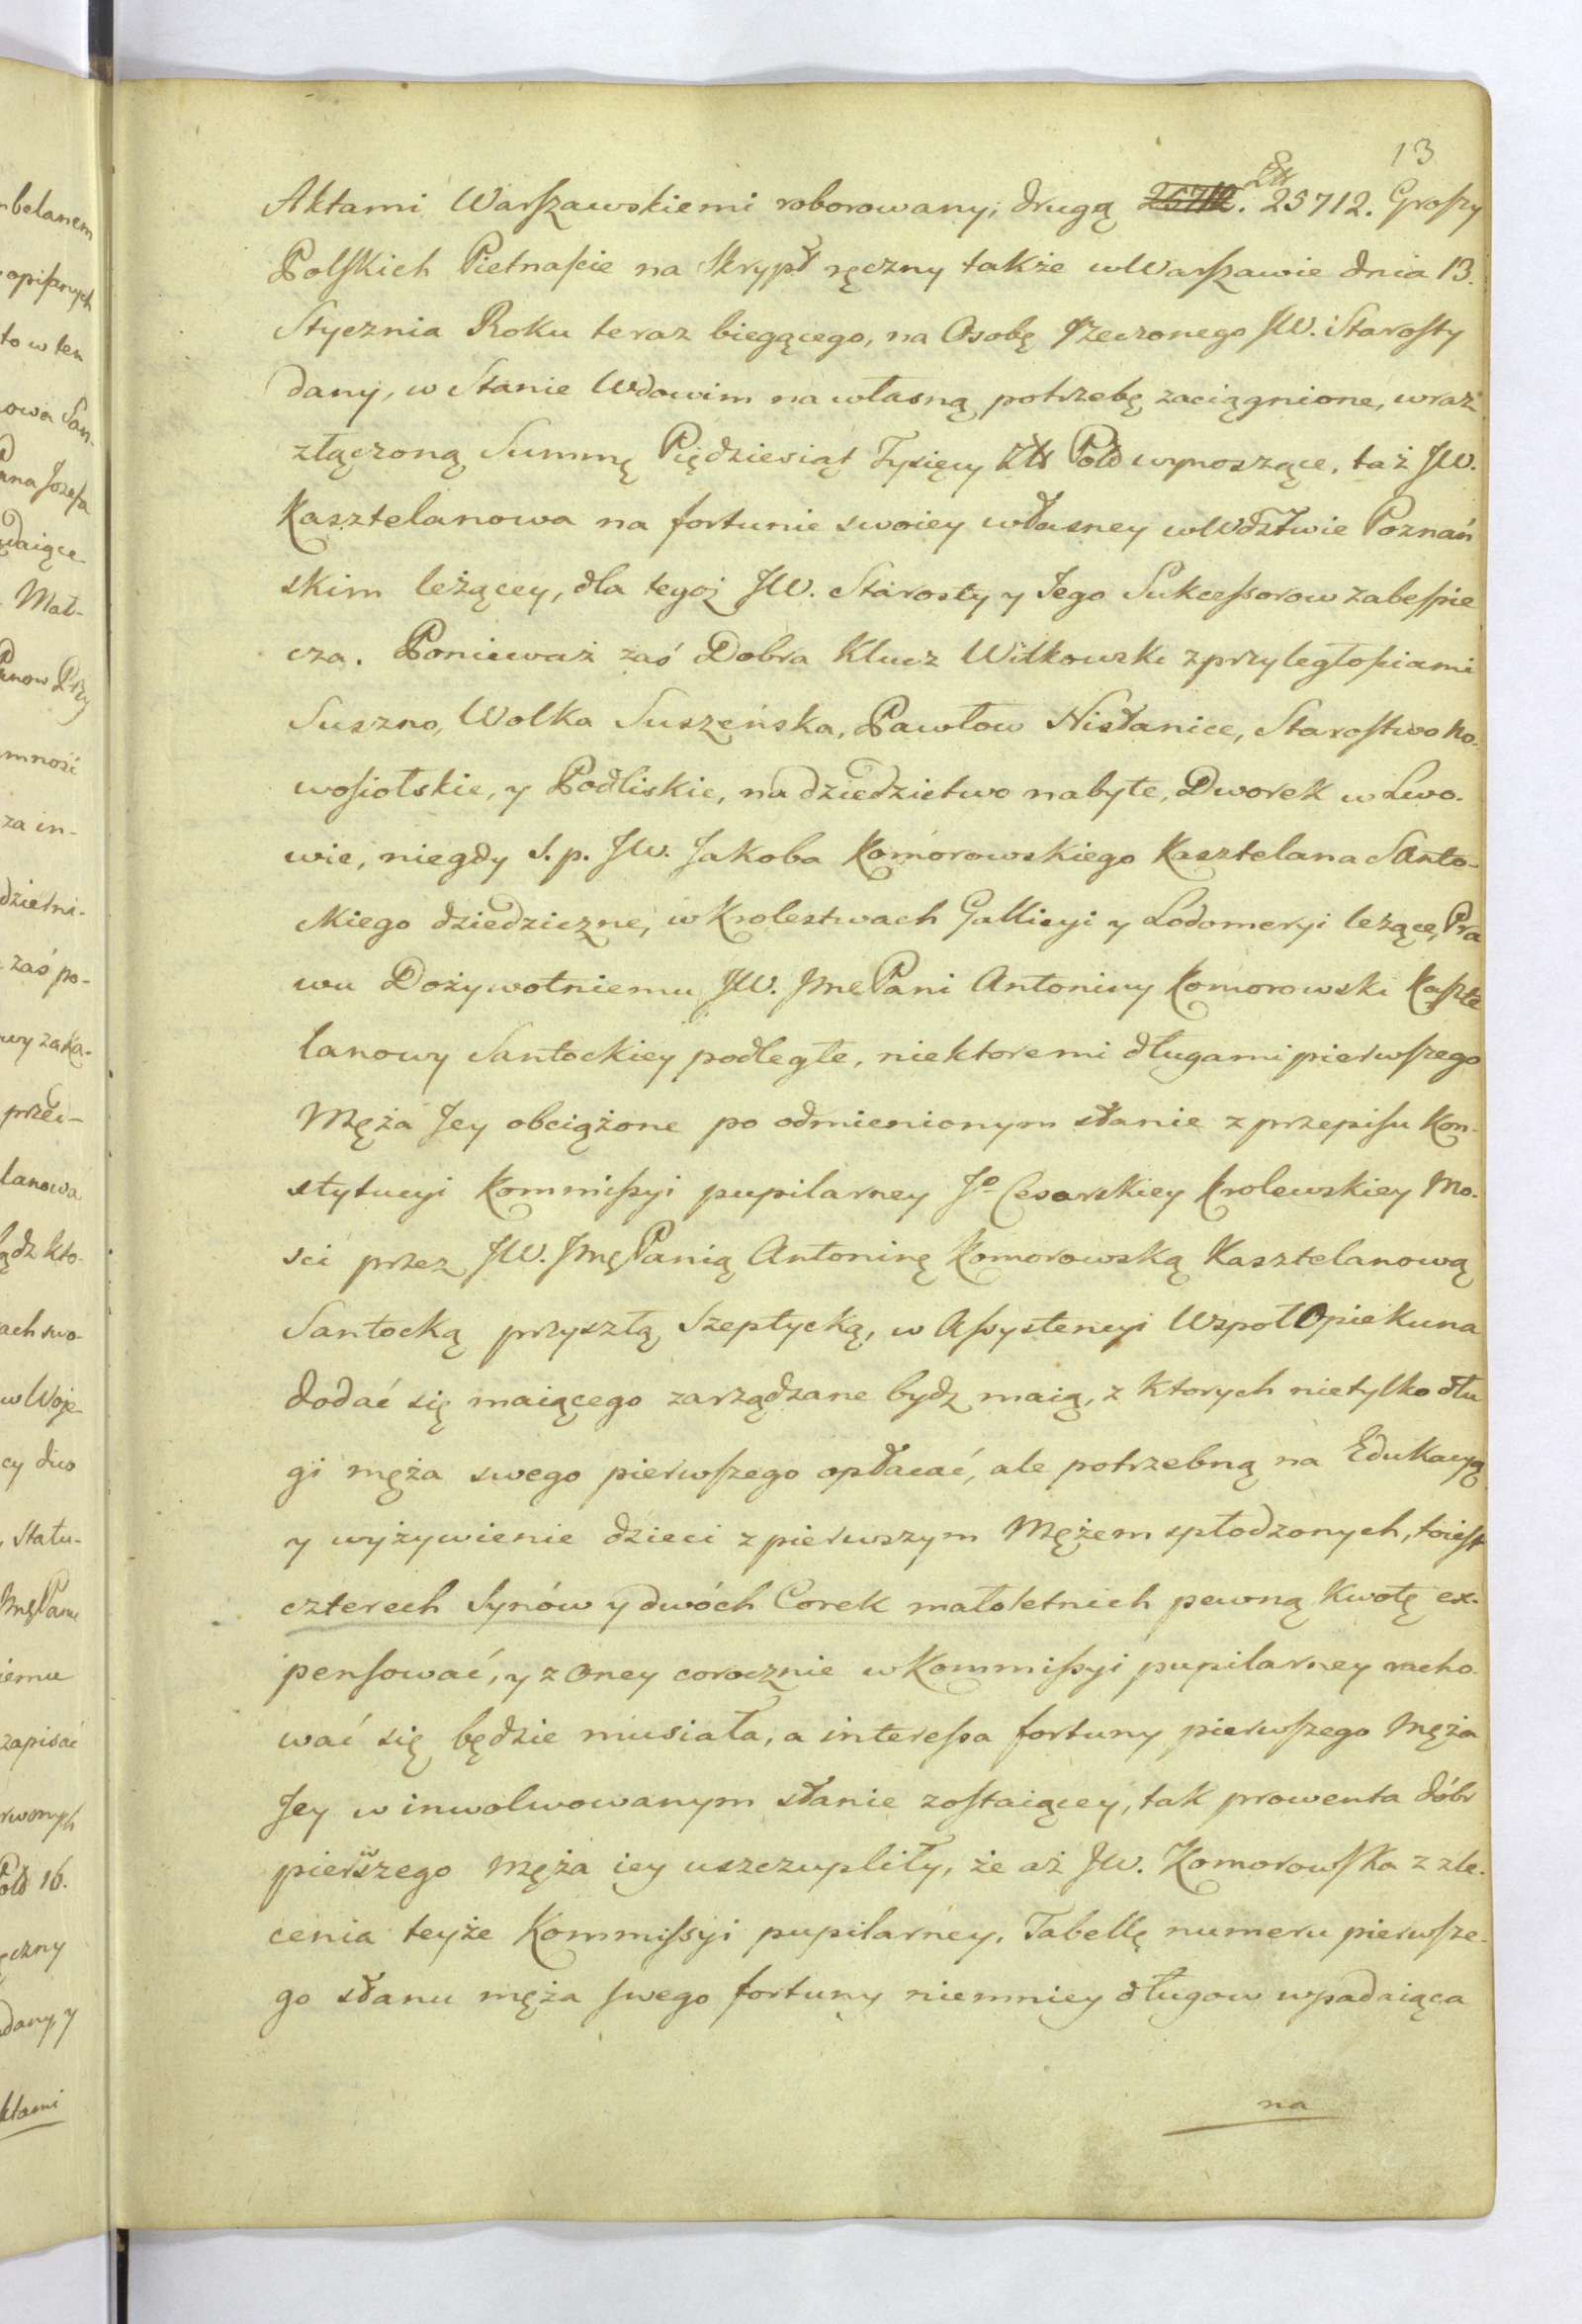 13
Aktami Warszawskiemi roborowany; drugą Złł 25712. Groszy
Polskich Pietnaście na Skrypt ręczny także w Warszawie dnia 13.
Stycznia Roku teraz biegącego, na Osobę rzeczonego JW. Starosty
dany, w Stanie Wdowim na własną potrzebę zaciągnione, wraz
złączoną Summę Piędziesiąt Tysięcy Złł Pold wynoszące, taż JW.
Kasztelanowa na fortunie swoiey własney w Wdztwie Poznań
skim leżącey, dla tegoż JW. Starosty y Jego Sukcessorow zabespie
cza. Ponieważ zaś Dobra Klucz Witkowski z przyległosciami
Suszno, Wolka Suszeńska, Pawłow Nisłanice, Starostwo No-
wosiołskie, y Podliskie, na dziedzictwo nabyte, Dworek w Lwo-
wie, niegdy S. p. JW. Jakoba Komorowskiego Kasztelana Santo-
ckiego dziedziczne, w Krolestwach Gallicyi y Lodomeryi leżące, Pra
wu Dożywotniemu JW. Jmę Pani Antoniny Komorowski Kaszte
lanowy Santockiey podległe, niektoremi długami pierwszego
Męża Jey obciążone po odmienionym stanie z przepisu Kon-
stytucyi Kommissyi pupilarney Jo Cesarskiey Krolewskiey Mo-
sci przez JW. Jmę Panią Antoninę Komorowską Kasztelanową
Santocką przyszłą Szeptycką, w Assystencyi Wspoł Opiekuna
dodać się maiącego zarządzane bydz maią, z ktorych nietylko dłu
gi męża swego pierwszego opłacać, ale potrzebną na Edukacyą
y wyżywienie dzieci z pierwszym Mężem spłodzonych, toiest
czterech Synów y dwóch Corek małoletnich pewną Kwotę ex-
pensować, y z oney corocznie w Kommissyi pupilarney racho-
wać się będzie musiała, a interessa fortuny pierwszego Męża
Jey w inwolwowanym stanie zostaiącey, tak prowenta dóbr
pierwszego Męża iey uszczupliły, że aż JW. Komorowska z zle-
cenia teyże Kommissyi pupilarney, Tabellę numeru pierwsze-
go stanu męża swego fortuny niemniey długow wpadaiąca
na